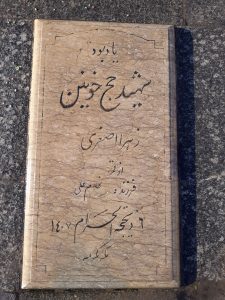 یادبود
شهید حج خونین
زهرا اصغری
فرزند: غلامعلی
۶ ذیحجه الحرام ۱۴۰۷
مکه مکرمه